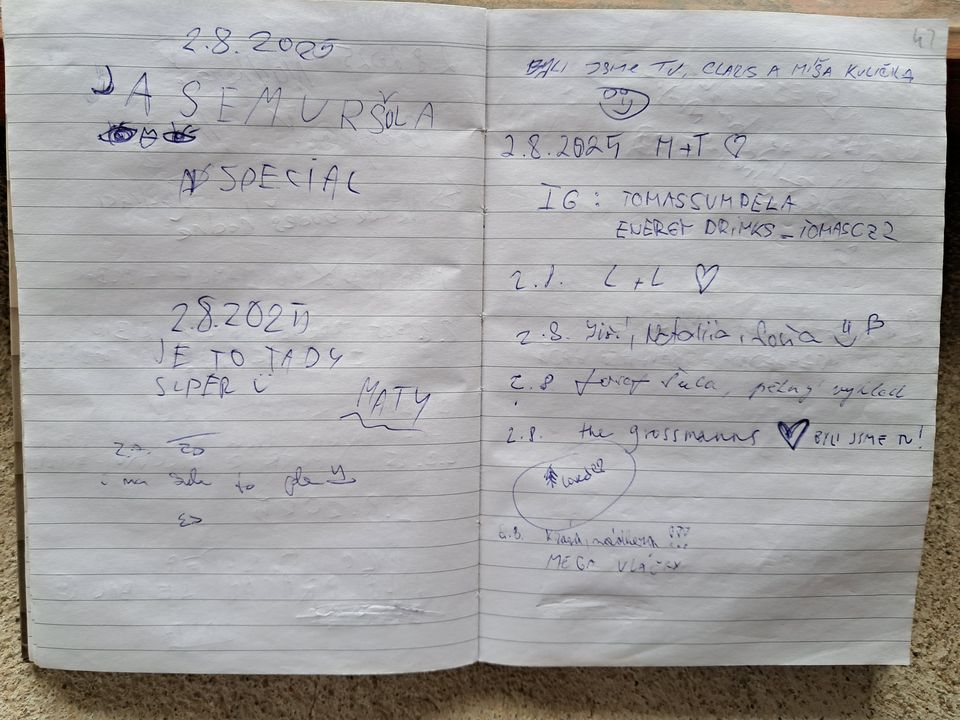 2.8.2025
JA SEM URŠOLA
SPECIAL
2.8.2025
JE TO TADY
SUPER
MATY
to
47
BYLI JSME TU, CLAUS A MÍŠA KULIČKA
2.8.2025 M+T ♡
IG: TOMASSUMPELA
ENERGY DRINKS_TOMASCZ2
2.8. L+L ♡
2.8. Jiří, Nataliia,
2.8 Josef, pěkný výhled
2.8. the grossmanns ♥ BYLI JSME TU!
MEGA